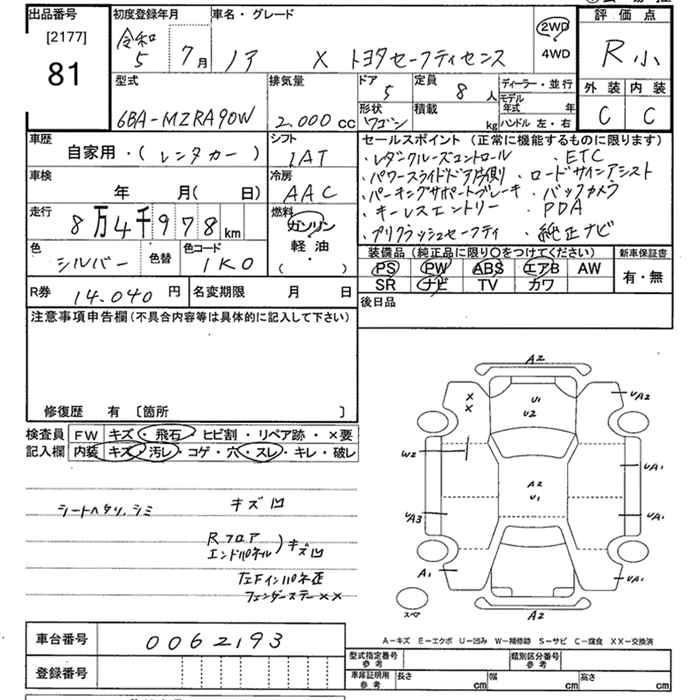 出品番号
[2177]
81
初度登録年月
令和
5 7月
車名・グレード
ノア X トヨタセーフティセンス
2WD
4WD
評価点
R 小
外装 内装
C C
型式
6BA-MZRA90W
排気量
2.000 cc
ドア
5
定員
8 人
形状
ワゴン
積載
kg
ディーラー・並行
モデル年式 年
ハンドル 左・右
車歴
自家用・(レンタカー)
シフト
IAT
車検
年 月(日)
冷房
AAC
走行
8万4千978 km
燃料
ガソリン
軽油
( )
色
シルバー
色替
色コード
1K0
R券 14.040 円
名変期限 月 日
セールスポイント(正常に機能するものに限ります)
・レダクルーズコントロール ・ETC
・パワースライドドア片側 ・ロードサインアシスト
・パーキングサポートブレーキ ・バックカメラ
・キーレスエントリー ・PDA
・プリクラッシュセーフティ ・純正ナビ
装備品(純正品に限り〇をつけてください)
PS PW ABS エアB AW
SR ナビ TV カワ
新車保証書
有・無
後日品
注意事項申告欄(不具合内容等は具体的に記入して下さい)
修復歴 有 〔箇所 〕
検査員
記入欄
FW キズ・飛石・ヒビ割・リペア跡・×要
内装 キズ・汚レ・コゲ・穴・スレ・キレ・破レ
シートヘタリ、シミ キズ凹
Rフロア
エンドパネル
)キズ凹
左Fインパネ歪
フェンダーステー××
A2
U1
U2
×
×
UA2
W2
UA1
A2
U1
UA3
UA1
A1
UA1
スペア
A2
A-キズ E-エクボ U-凹み W-補修跡 S-サビ C-腐食 XX-交換済
車台番号 0062193
登録番号
型式指定番号
参考
類別区分番号
参考
車庫証明用
参考
長さ cm 幅 cm 高さ cm